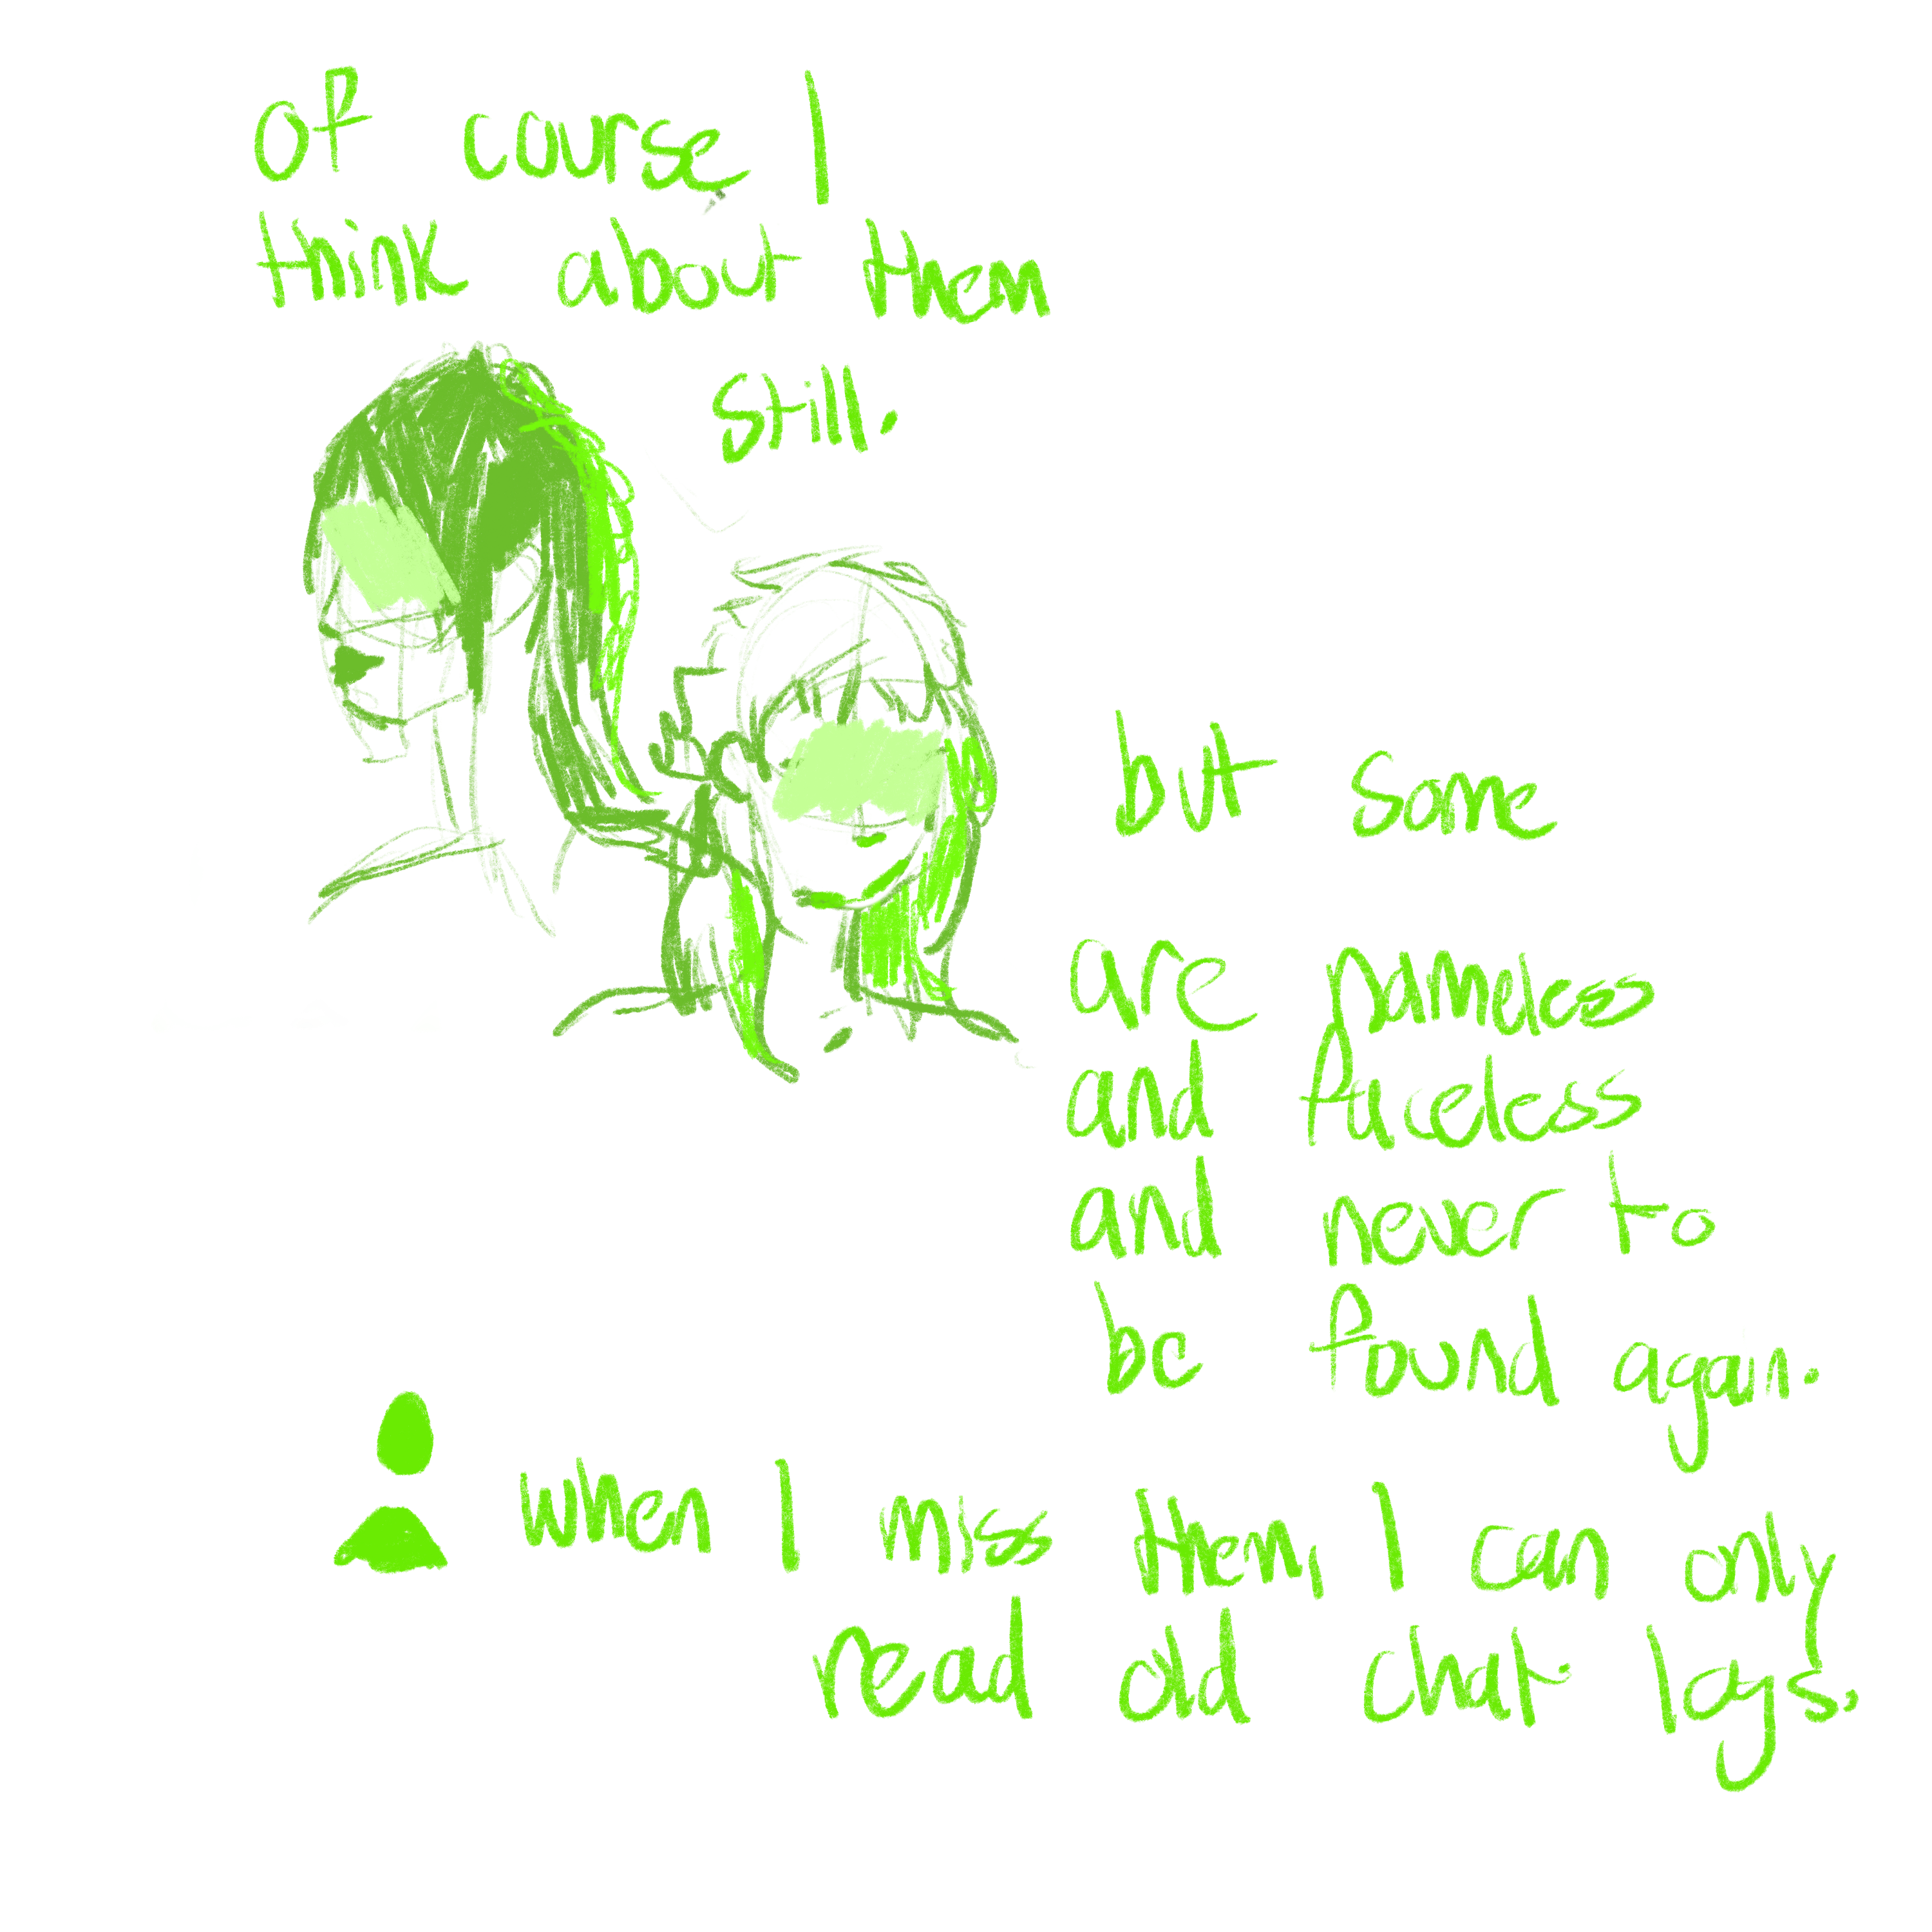 of course I
think about them
still.
but some
are nameless
and faceless
and never to
be found again.
when I miss them, I can only
read old chat logs.